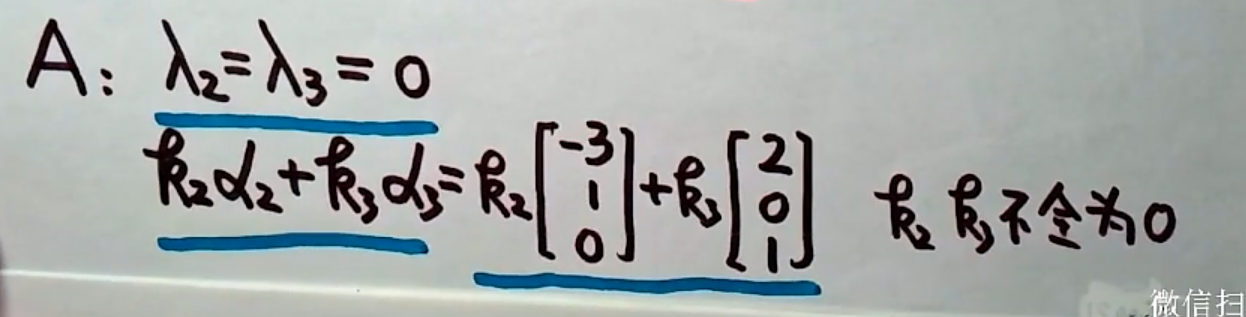 A: λ₂=λ₃=0
k₂α₂+k₃α₃=k₂[-3 1 0]+k₃[2 0 1] k₂ k₃不全为0
微信扫